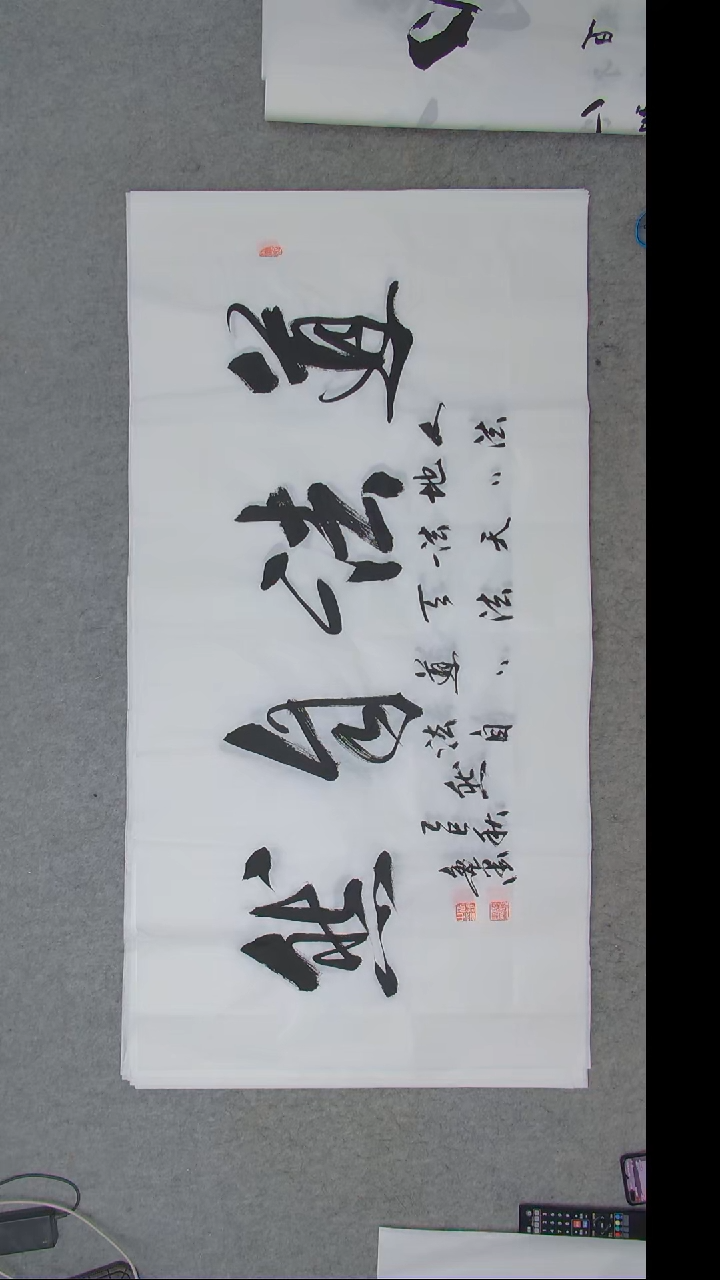 道法自然
人法
地〻
法天
〻法
道〻
法自
然
乙巳秋